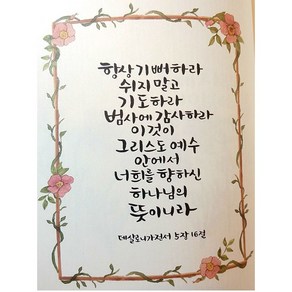 항상 기뻐하라
쉬지 말고
기도하라
범사에 감사하라
이것이
그리스도 예수
안에서
너희를 향하신
하나님의
뜻이니라
데살로니가전서 5장 16절